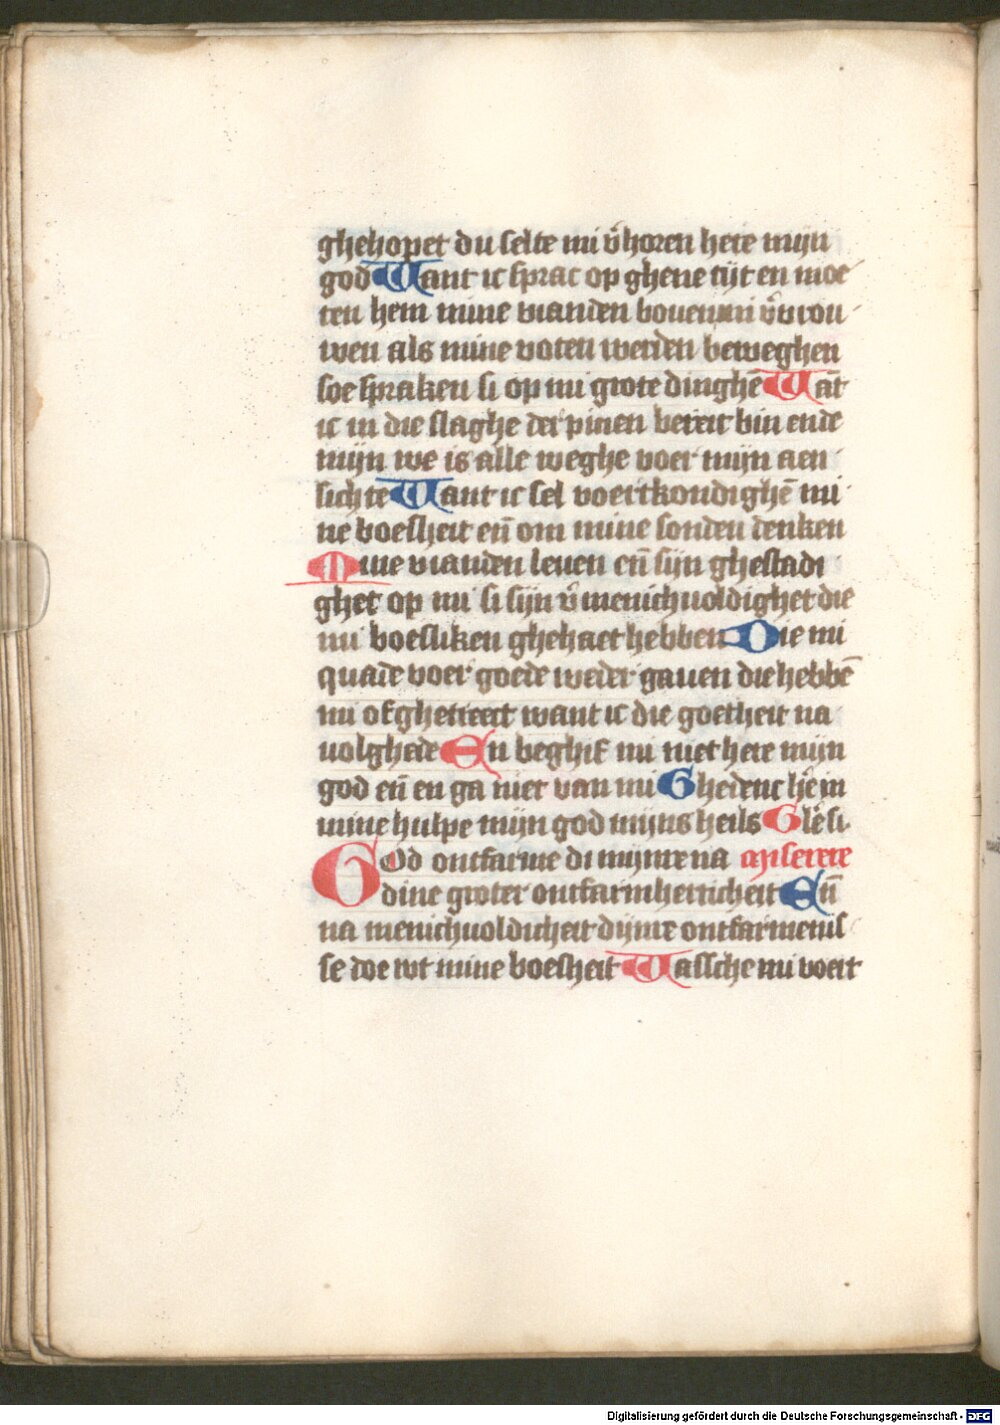 ghehopet du selte mi v̾horen here mijn
god Want ic sprac op ghene tijt en moe
ten hem mine vianden bouen mi v̾vrou
wen als mine voten werden beweghen
soe spraken si op mi grote dinghē Wāt
ic in die slaghe der pinen bereit bin ende
mijn we is alle weghe voer mijn aen
sichte Want ic sel voertkondighē mi
ne boesheit en̄ om mine sonden denken
Mine vianden leuen en̄ sijn ghestadi
ghet op mi si sijn v̾menichuoldighet die
mi boesliken ghehaet hebben Die mi
quade voer goede weder gauen die hebbē
mi ofghetreect want ic die goetheit na
volghede En beghif mi niet here mijn
god en̄ en ga niet van mi Ghedenc h̾e in
mine hulpe mijn god mijns heils Gl̾e si
God ontfarme di mijnre na Miserere
dine groter ontfarmherticheit En̄
na menichuoldicheit dijnre ontfarmenis
se doe wt mine boesheit Wassche mi voert
Digitalisierung gefördert durch die Deutsche Forschungsgemeinschaft - DFG